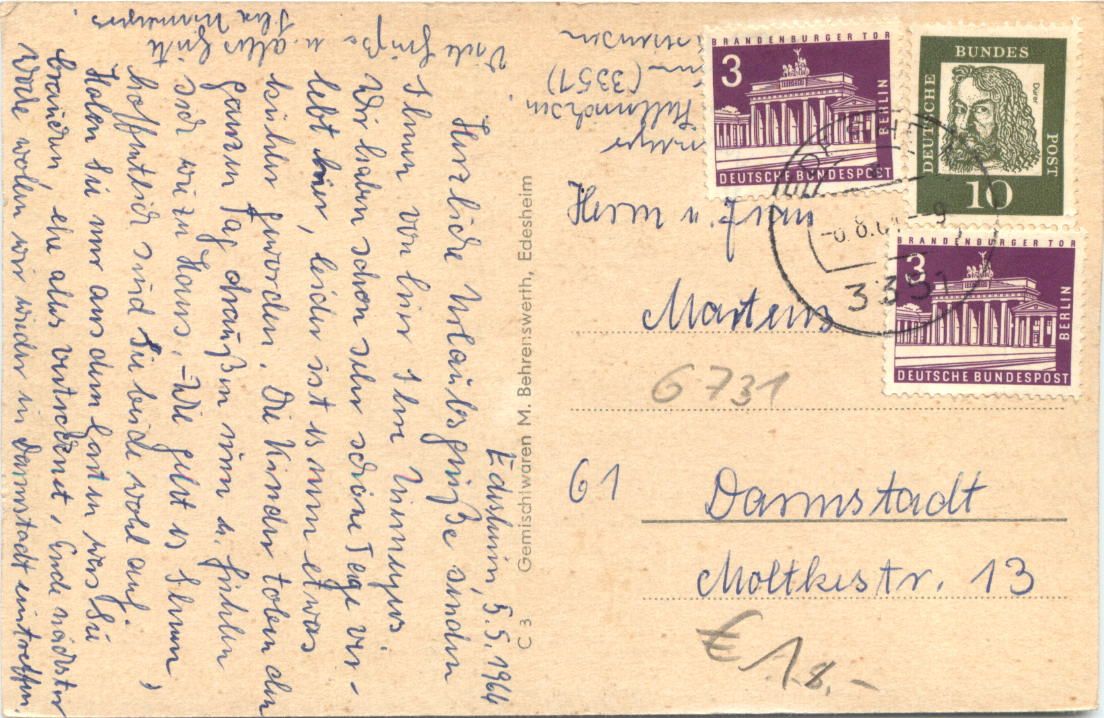 Edesheim, 5.5.1964
Herzliche Urlaubsgrüße senden
Ihnen von hier Ihre
Wir haben schon sehr schöne Tage ver-
lebt hier, leider ist es nun etwas
kühler geworden. Die Kinder toben den
ganzen Tag draußen rum u. fühlen
sich wie zu Haus. – Wie geht es Ihnen,
hoffentlich sind Sie beide wohl auf.
Holen Sie nur aus dem Garten was Sie
brauchen, ehe alles vertrocknet. Ende nächster
Woche wollen wir wieder in Darmstadt eintreffen.
Viele Grüße u. alles Gute
Ihre
(3351)
C 3 Gemischtwaren M. Behrenswerth, Edesheim
BRANDENBURGER TOR
3
BERLIN
DEUTSCHE BUNDESPOST
BUNDES
DEUTSCHE
POST
Dürer
10
BRANDENBURGER TOR
3
BERLIN
DEUTSCHE BUNDESPOST
3351
Herrn u. Frau
Martens
6731
61 Darmstadt
Moltkestr. 13
€ 1.8.-